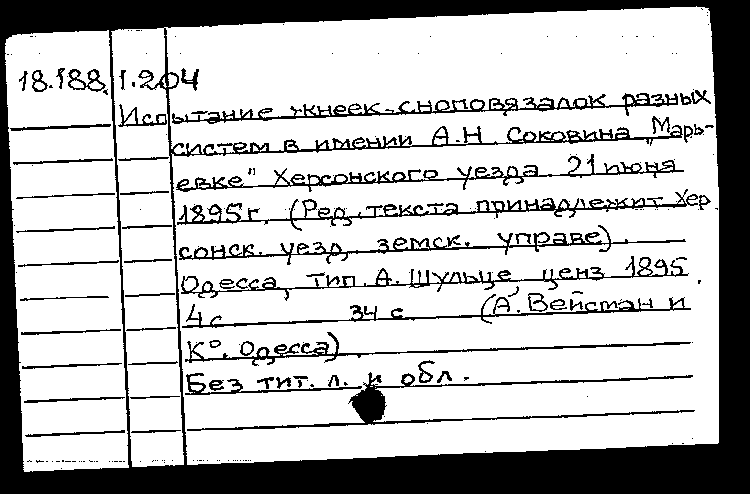 18.188.1.204
Испытание жнеек-сноповязалок разных
систем в имении А.Н. Соковина „Марь-
евке" Херсонского уезда 21 июня
1895 г. (Ред. текста принадлежит Хер
сонск. уезд. земск. управе).
Одесса, тип. А. Шульце ценз 1895.
4 с 34 с. (А. Вейстан и
К°. Одесса).
Без тит. л. и обл.